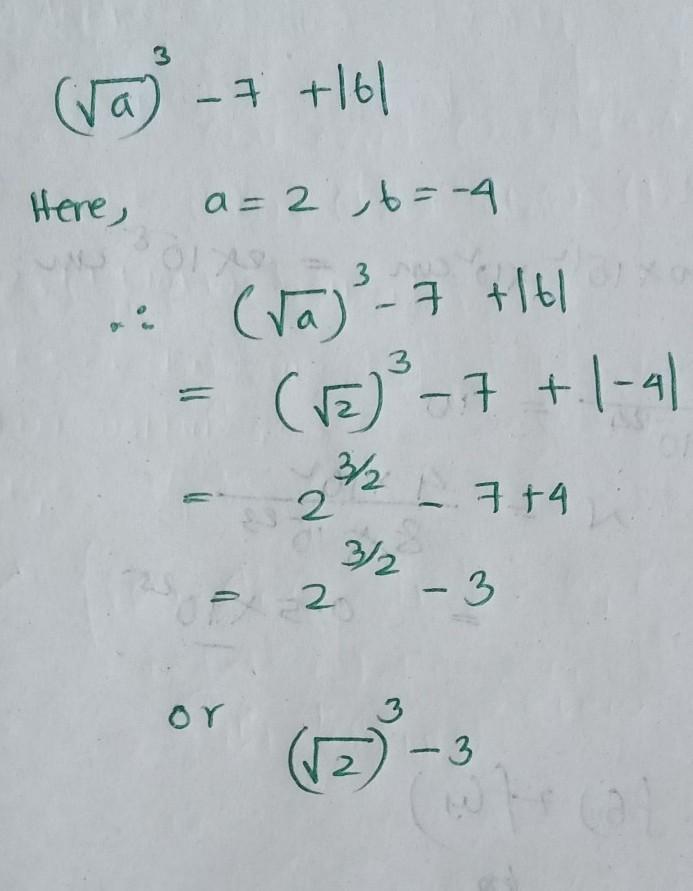 (√a)³ - 7 + |b|
Here, a = 2, b = -4
∴ (√a)³ - 7 + |b|
= (√2)³ - 7 + |-4|
= 2^{3/2} - 7 + 4
= 2^{3/2} - 3
or (√2)³ - 3